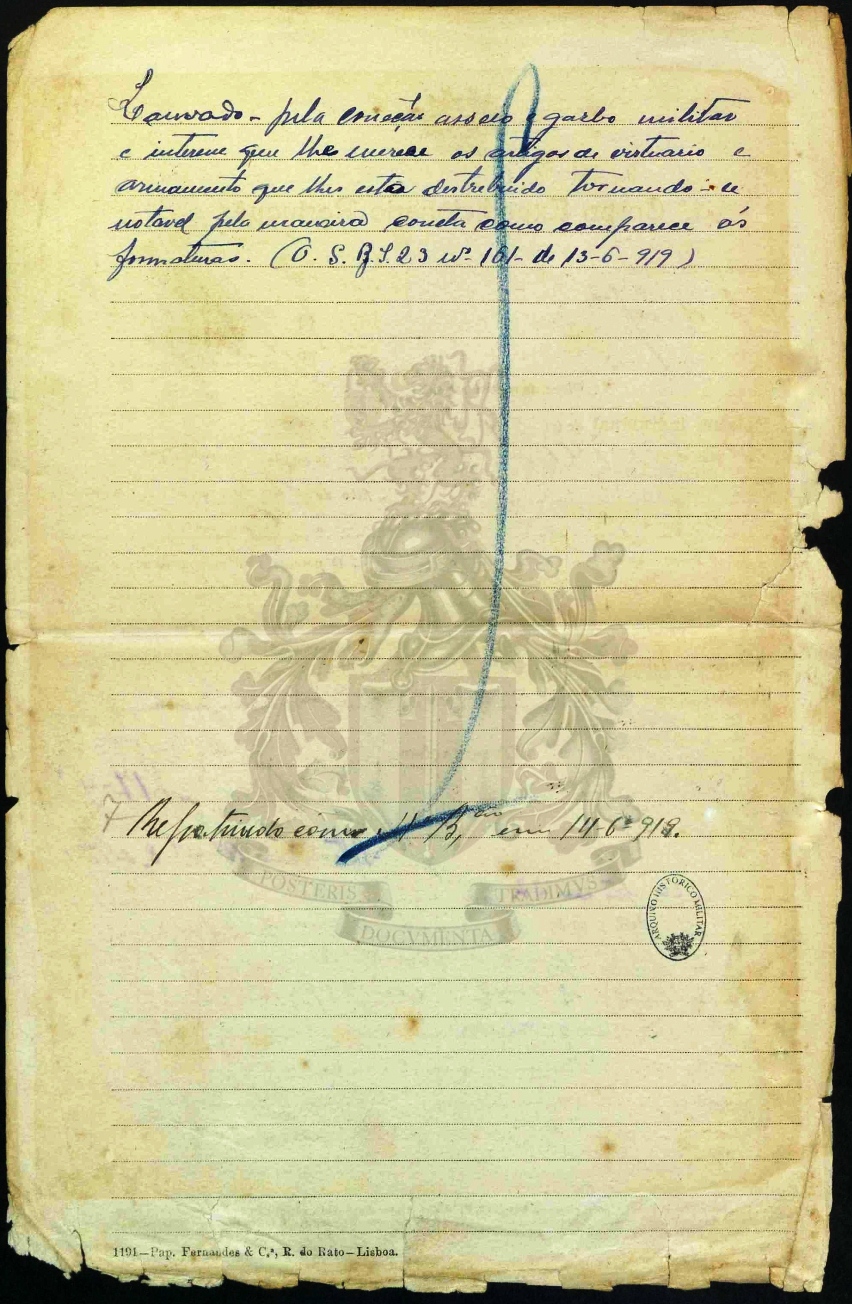 Louvado - pela correcção asseio e garbo militar
e interesse que lhe merece os artigos de virtuario e
armamento que lhes está destrebuido tornando-se
notavel pela maneira correta como comparece ás
formaturas. (O. S. B. I. 23 nº 161 - de 13-6-919)
Repatriado com o 4º B, em 14-6-919.
POSTERIS
TRADIMVS
DOCVMENTA
ARQUIVO HISTORICO MILITAR
1191—Pap. Fernandes & C.ª, R. do Rato—Lisboa.